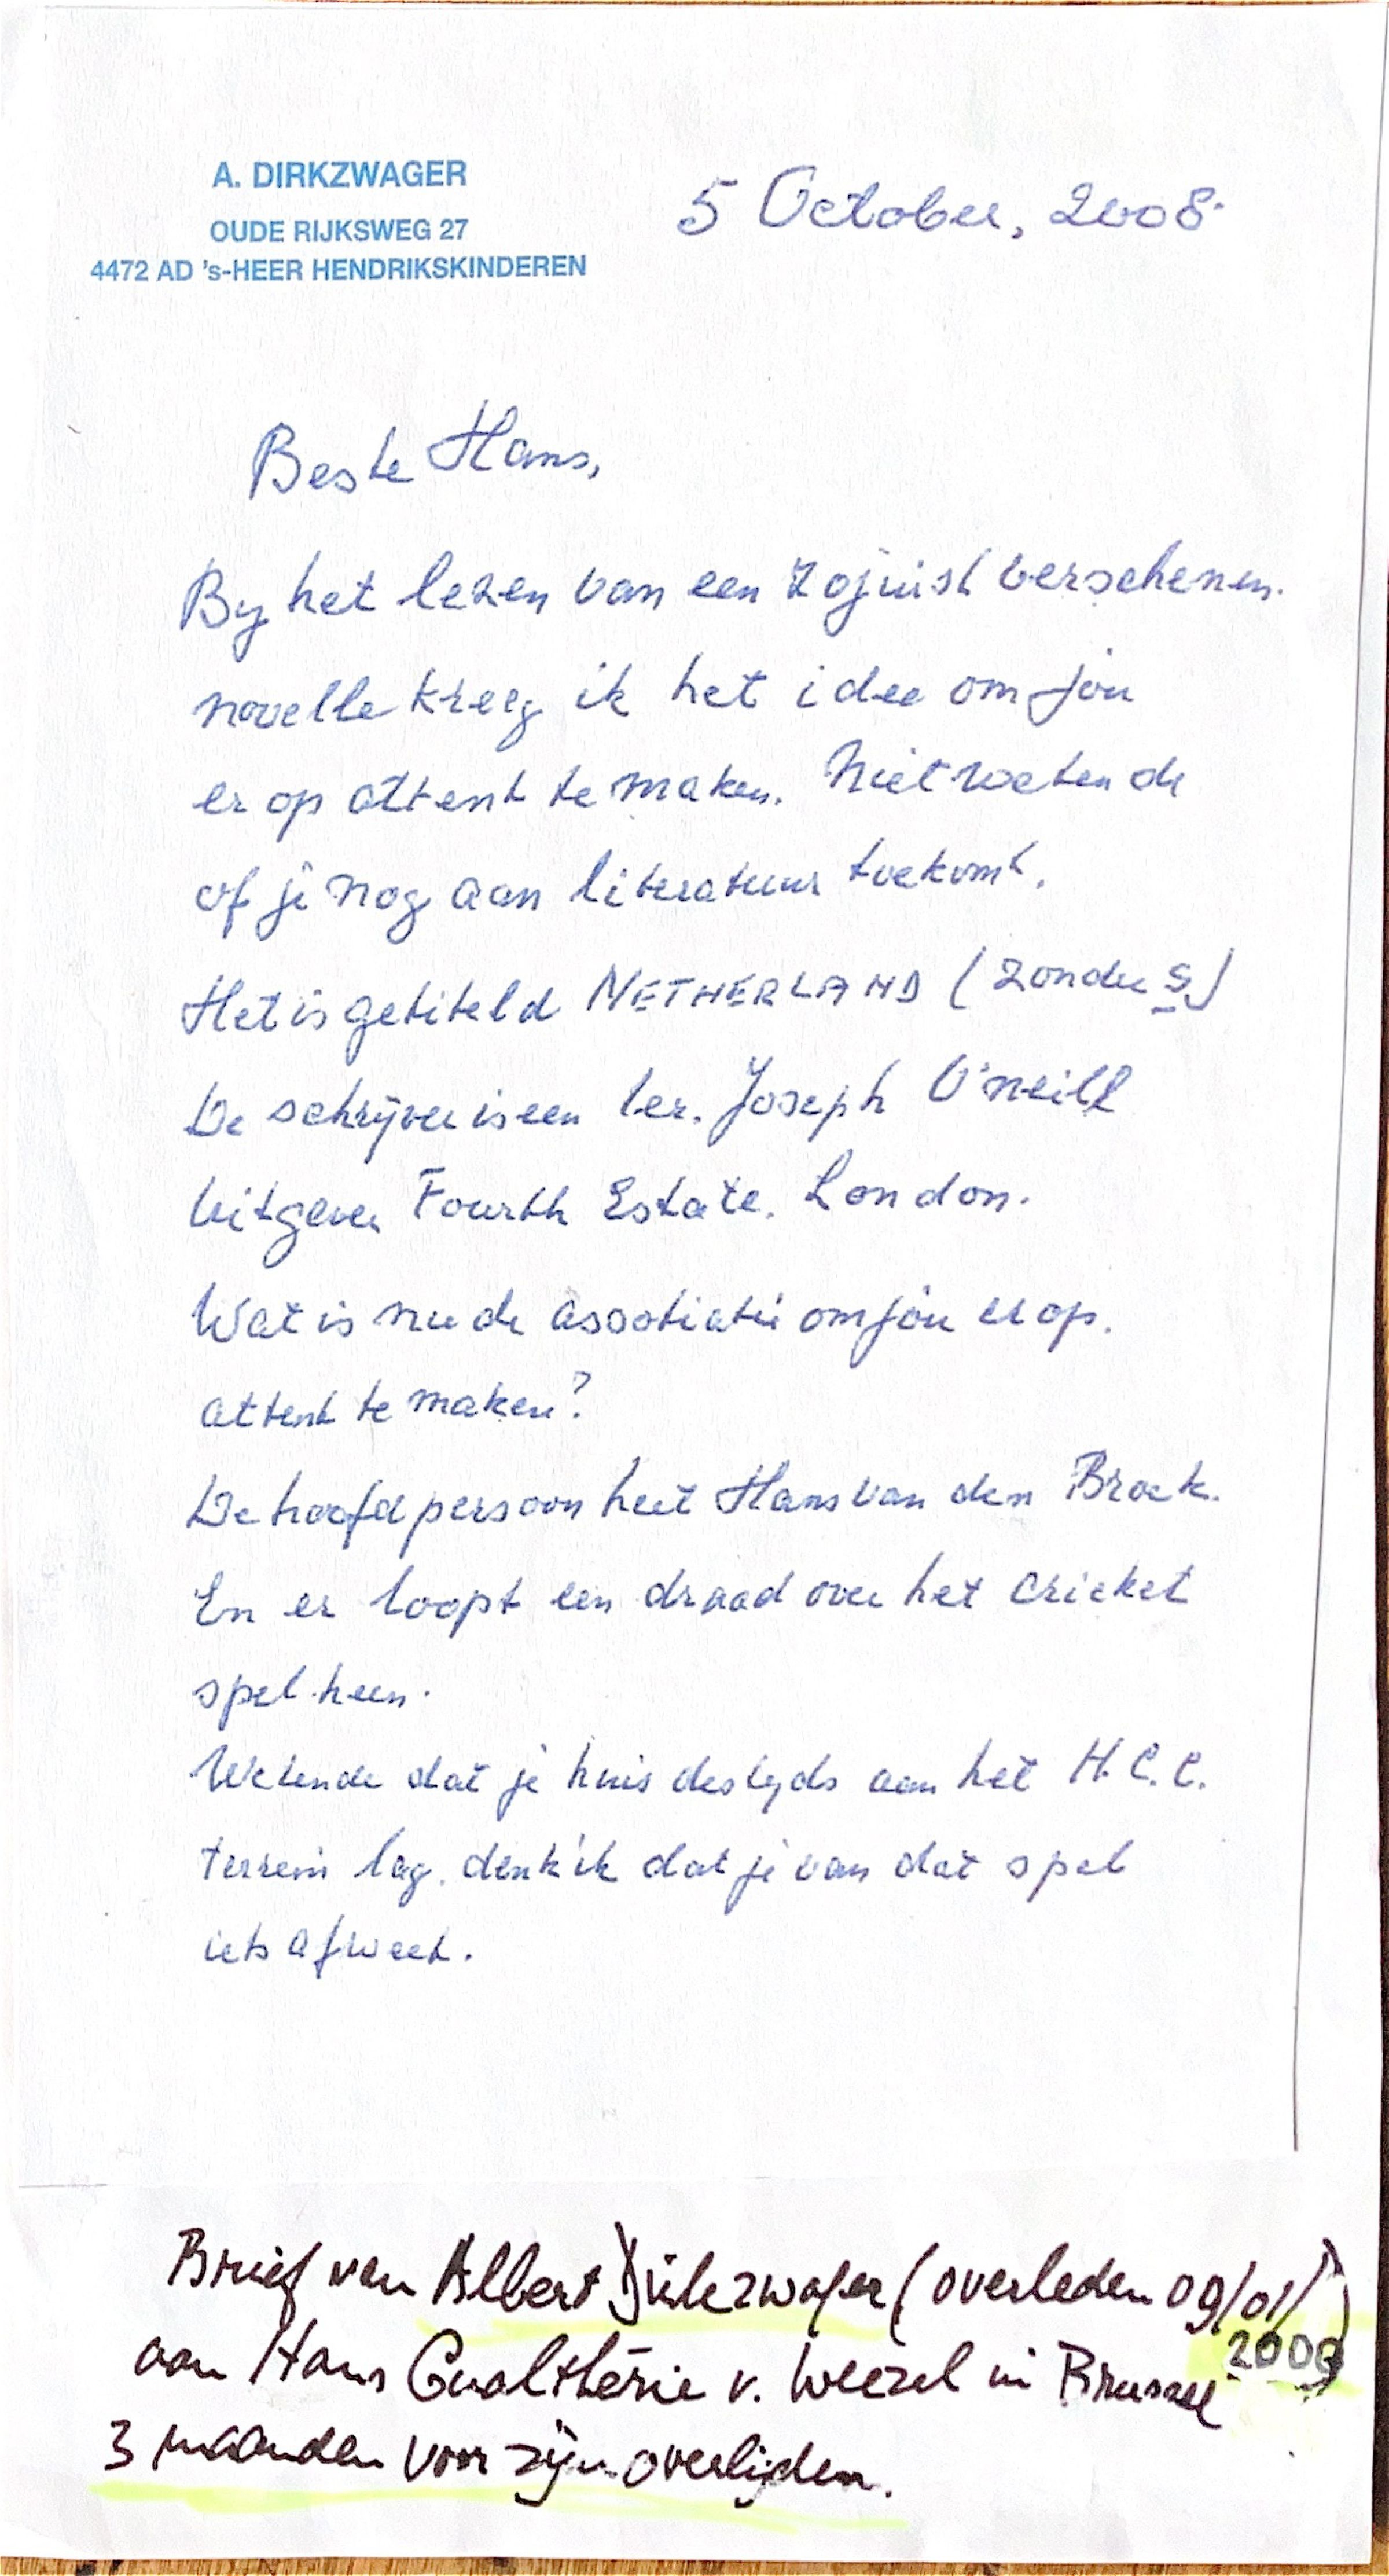 A. DIRKZWAGER
OUDE RIJKSWEG 27
4472 AD 's-HEER HENDRIKSKINDEREN
5 October, 2008.
Beste Hans,
By het lezen van een zojuist verschenen.
novelle kreeg ik het idee om jou
er op attent te maken. Niet wetende
of je nog aan literatuur toekomt.
Het is getiteld NETHERLAND (zonder s)
De schrijver is een Ier. Joseph O'neill
Uitgever Fourth Estate. London.
Wat is nu de assotiatie om jou er op.
attent te maken?
De hoofdpersoon heet Hans van den Broek.
En er loopt een draad over het cricket
spel heen.
Wetende dat je huis destyds aan het H.C.C.
terrein lag. denk ik dat je van dat spel
iets afweet.
Brief van Albert Dirkzwager (overleden 09/01/
2009)
aan Hans Gualthérie v. Weezel in Brussel
3 maanden voor zijn overlijden.